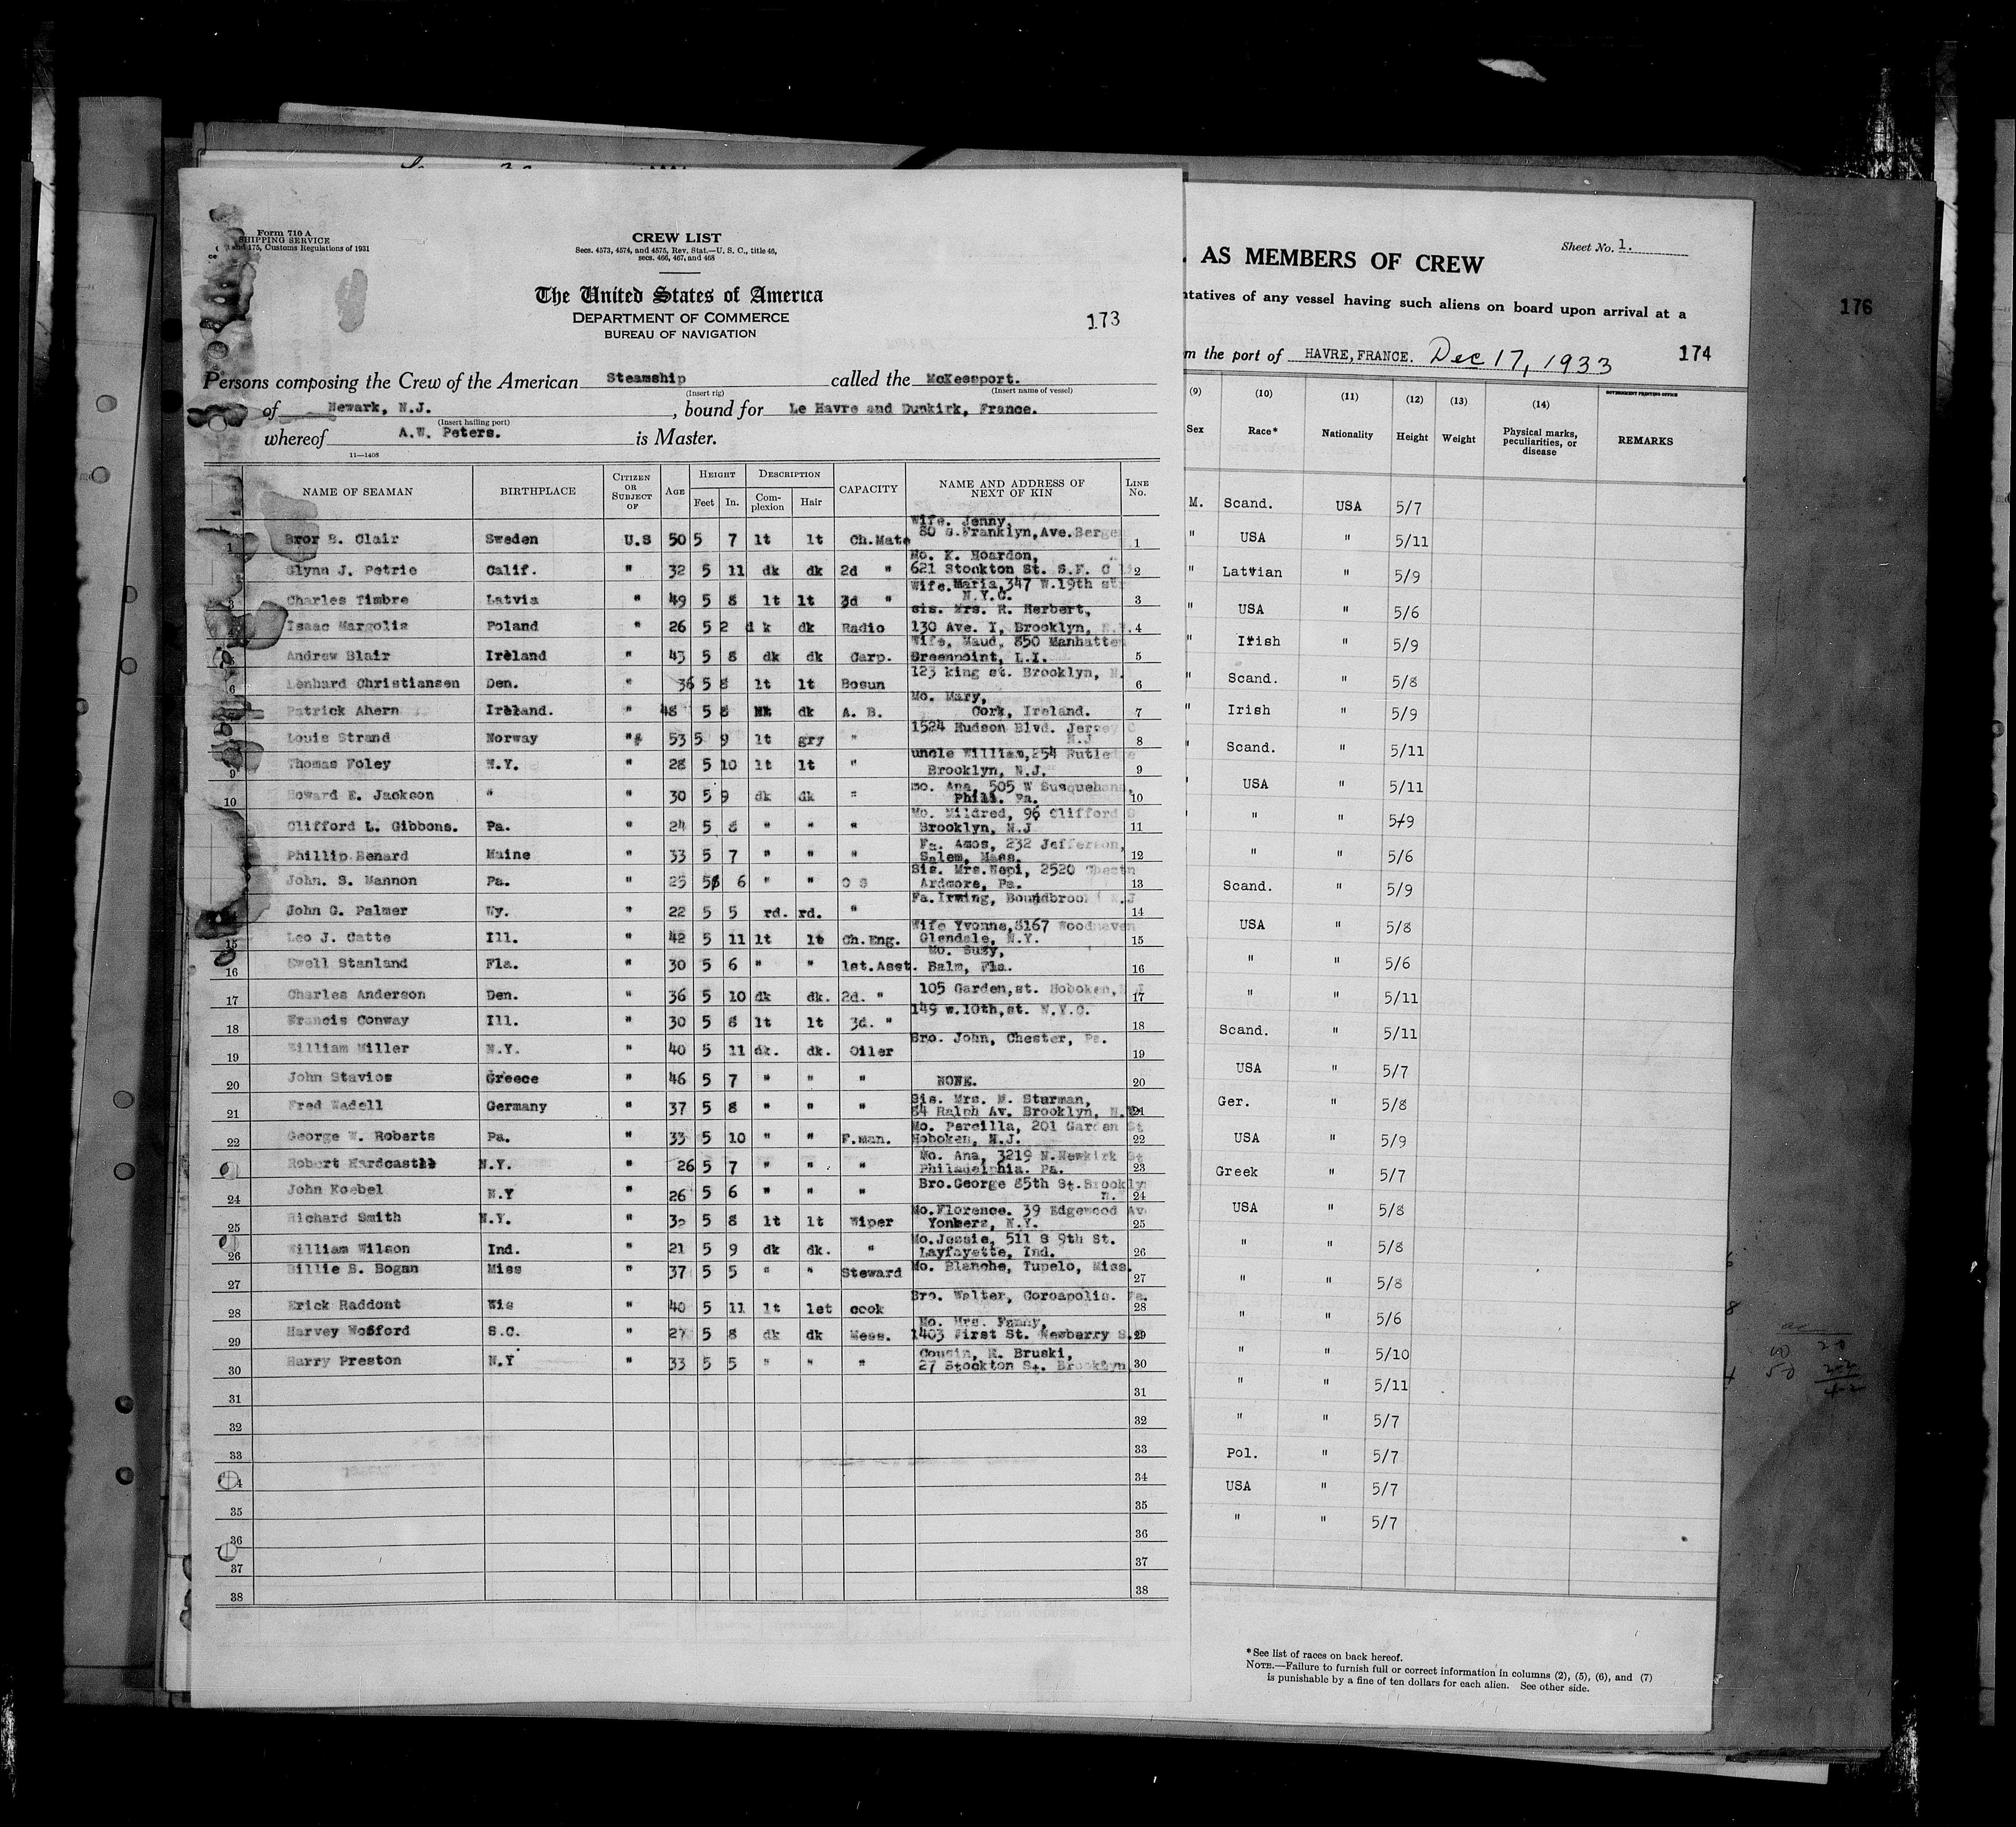 Form 710 A
SHIPPING SERVICE
and 175, Customs Regulations of 1931
CREW LIST
Secs. 4573, 4574, and 4575, Rev. Stat.—U. S. C., title 46,
secs. 466, 467, and 468
The United States of America
DEPARTMENT OF COMMERCE
BUREAU OF NAVIGATION
173
Persons composing the Crew of the American Steamship called the McKeesport.
(Insert rig) (Insert name of vessel)
of Newark, N.J. , bound for Le Havre and Dunkirk, France.
(Insert hailing port)
whereof A.W. Peters. is Master.
11—1408
NAME OF SEAMAN BIRTHPLACE CITIZEN OR SUBJECT OF AGE HEIGHT Feet In. DESCRIPTION Complexion Hair CAPACITY NAME AND ADDRESS OF NEXT OF KIN LINE No.
Wife. Jenny,
1 Bror B. Clair Sweden U.S 50 5 7 lt lt Ch.Mate 80 S.Franklyn,Ave.Berge 1
Mo. K. Hoardon,
Glynn J. Petrie Calif. " 32 5 11 dk dk 2d " 621 Stockton St. S.F. C 2
Wife. Maria,347 W.19th st
3 Charles Timbre Latvia " 49 5 8 lt lt 3d " N.Y.C. 3
sis. Mrs. R. Herbert,
Isaac Margolis Poland " 26 5 2 dk dk Radio 130 Ave. I, Brooklyn, N.Y. 4
Wife, Maud, 850 Manhatten
Andrew Blair Ireland " 43 5 8 dk dk Carp. Greenpoint, L.I. 5
6 Lenhard Christiansen Den. " 36 5 8 lt lt Bosun 123 king st. Brooklyn, N. 6
Mo. Mary,
Patrick Ahern Ireland. " 48 5 8 dk A. B. Cork, Ireland. 7
1524 Hudson Blvd. Jersey C
Louis Strand Norway " 53 5 9 lt gry " N.J 8
uncle William,254 Rutledge
9 Thomas Foley N.Y. " 28 5 10 lt lt " Brooklyn, N.J. 9
mo. Ana, 505 W Susquehana,
10 Howard E. Jackson " " 30 5 9 dk dk " Phili. Pa. 10
Mo. Mildred, 96 Clifford
Clifford L. Gibbons. Pa. " 24 5 8 " " " Brooklyn, N.J 11
Fa. Amos, 232 Jefferson,
Phillip Benard Maine " 33 5 7 " " " Salem, Mass. 12
Sis. Mrs.Nepi, 2520 Chestn
John. S. Mannon Pa. " 25 5 6 " " O S Ardmore, Pa. 13
John G. Palmer Wy. " 22 5 5 rd. rd. " Fa.Irwing, Boundbrook N.J 14
Wife Yvonne,8167 Woodhaven
15 Leo J. Catte Ill. " 42 5 11 lt lt Ch.Eng. Glendale, N.Y. 15
Mo. Suzy,
16 Ewell Stanland Fla. " 30 5 6 " " 1st.Asst. Balm, Fla. 16
17 Charles Anderson Den. " 36 5 10 dk dk. 2d. " 105 Garden,st. Hoboken, 17
18 Francis Conway Ill. " 30 5 8 lt lt 3d. " 149 w.10th,st. N.Y.C. 18
19 William Miller N.Y. " 40 5 11 dk. dk. Oiler Bro. John, Chester, Pa. 19
20 John Stavios Greece " 46 5 7 " " " NONE. 20
Sis. Mrs. M. Sturman,
21 Fred Wadell Germany " 37 5 8 " " " 84 Ralph Av. Brooklyn, N. 21
Mo. Percilla, 201 Garden St
22 George W. Roberts Pa. " 33 5 10 " " F.man. Hoboken, N.J. 22
Mo. Ana, 3219 N.Newkirk St
Robert Hardcastle N.Y. " 26 5 7 " " " Philadelphia. Pa. 23
Bro.George 85th St.Brookly
24 John Koebel N.Y " 26 5 6 " " " n. 24
Mo.Florence. 39 Edgewood Av
25 Richard Smith N.Y. " 32 5 8 lt lt Wiper Yonkers, N.Y. 25
Mo.Jessie, 511 S 9th St.
26 William Wilson Ind. " 21 5 9 dk dk. " Layfayette, Ind. 26
27 Billie S. Bogan Miss " 37 5 5 " " Steward Mo. Blanche, Tupelo, Miss. 27
28 Erick Raddont Wis " 40 5 11 lt let cook Bro. Walter, Coroapolis. Pa. 28
Mo. Mrs. Fanny,
29 Harvey Wofford S.C. " 27 5 8 dk dk Mess. 1403 First St. Newberry S. 29
Cousin, R. Bruski,
30 Harry Preston N.Y " 33 5 5 " " " 27 Stockton St. Brooklyn 30
31 31
32 32
33 33
34 34
35 35
36 36
37 37
38 38
Sheet No. 1.
AS MEMBERS OF CREW
ntatives of any vessel having such aliens on board upon arrival at a
m the port of HAVRE, FRANCE. Dec 17, 1933
174
176
(9) (10) (11) (12) (13) (14) GOVERNMENT PRINTING OFFICE
Sex Race* Nationality Height Weight Physical marks, peculiarities, or disease REMARKS
M. Scand. USA 5/7
" USA " 5/11
" Latvian " 5/9
" USA " 5/6
" Irish " 5/9
" Scand. " 5/8
" Irish " 5/9
" Scand. " 5/11
" USA " 5/11
" " " 5/9
" " 5/6
Scand. " 5/9
USA " 5/8
" " 5/6
" " 5/11
Scand. " 5/11
USA " 5/7
Ger. " 5/8
USA " 5/9
Greek " 5/7
USA " 5/8
" " 5/8
" " 5/8
" " 5/6
" " 5/10
" " 5/11
" " 5/7
Pol. " 5/7
USA " 5/7
" " 5/7
*See list of races on back hereof.
NOTE.—Failure to furnish full or correct information in columns (2), (5), (6), and (7)
is punishable by a fine of ten dollars for each alien. See other side.